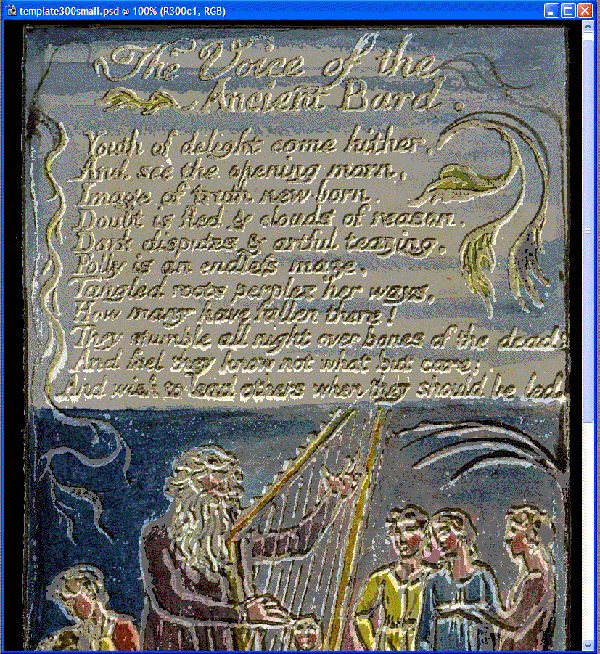 template300small.psd @ 100% (R300c1, RGB)
The Voice of the
Ancient Bard.
Youth of delight come hither,
And see the opening morn,
Image of truth new born.
Doubt is fled & clouds of reason.
Dark disputes & artful teazing.
Folly is an endless maze.
Tangled roots perplex her ways,
How many have fallen there!
They stumble all night over bones of the dead;
And feel they know not what but care;
And wish to lead others when they should be led